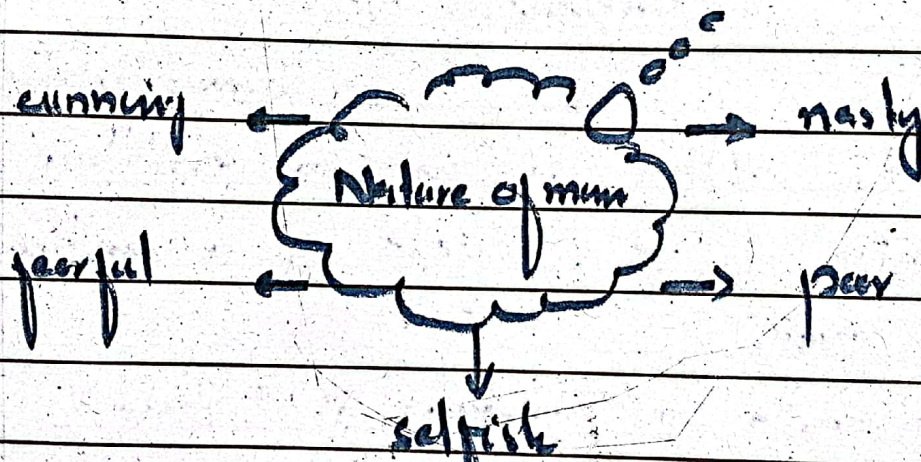 cunning
nasty
Nature of man
fearful
poor
selfish